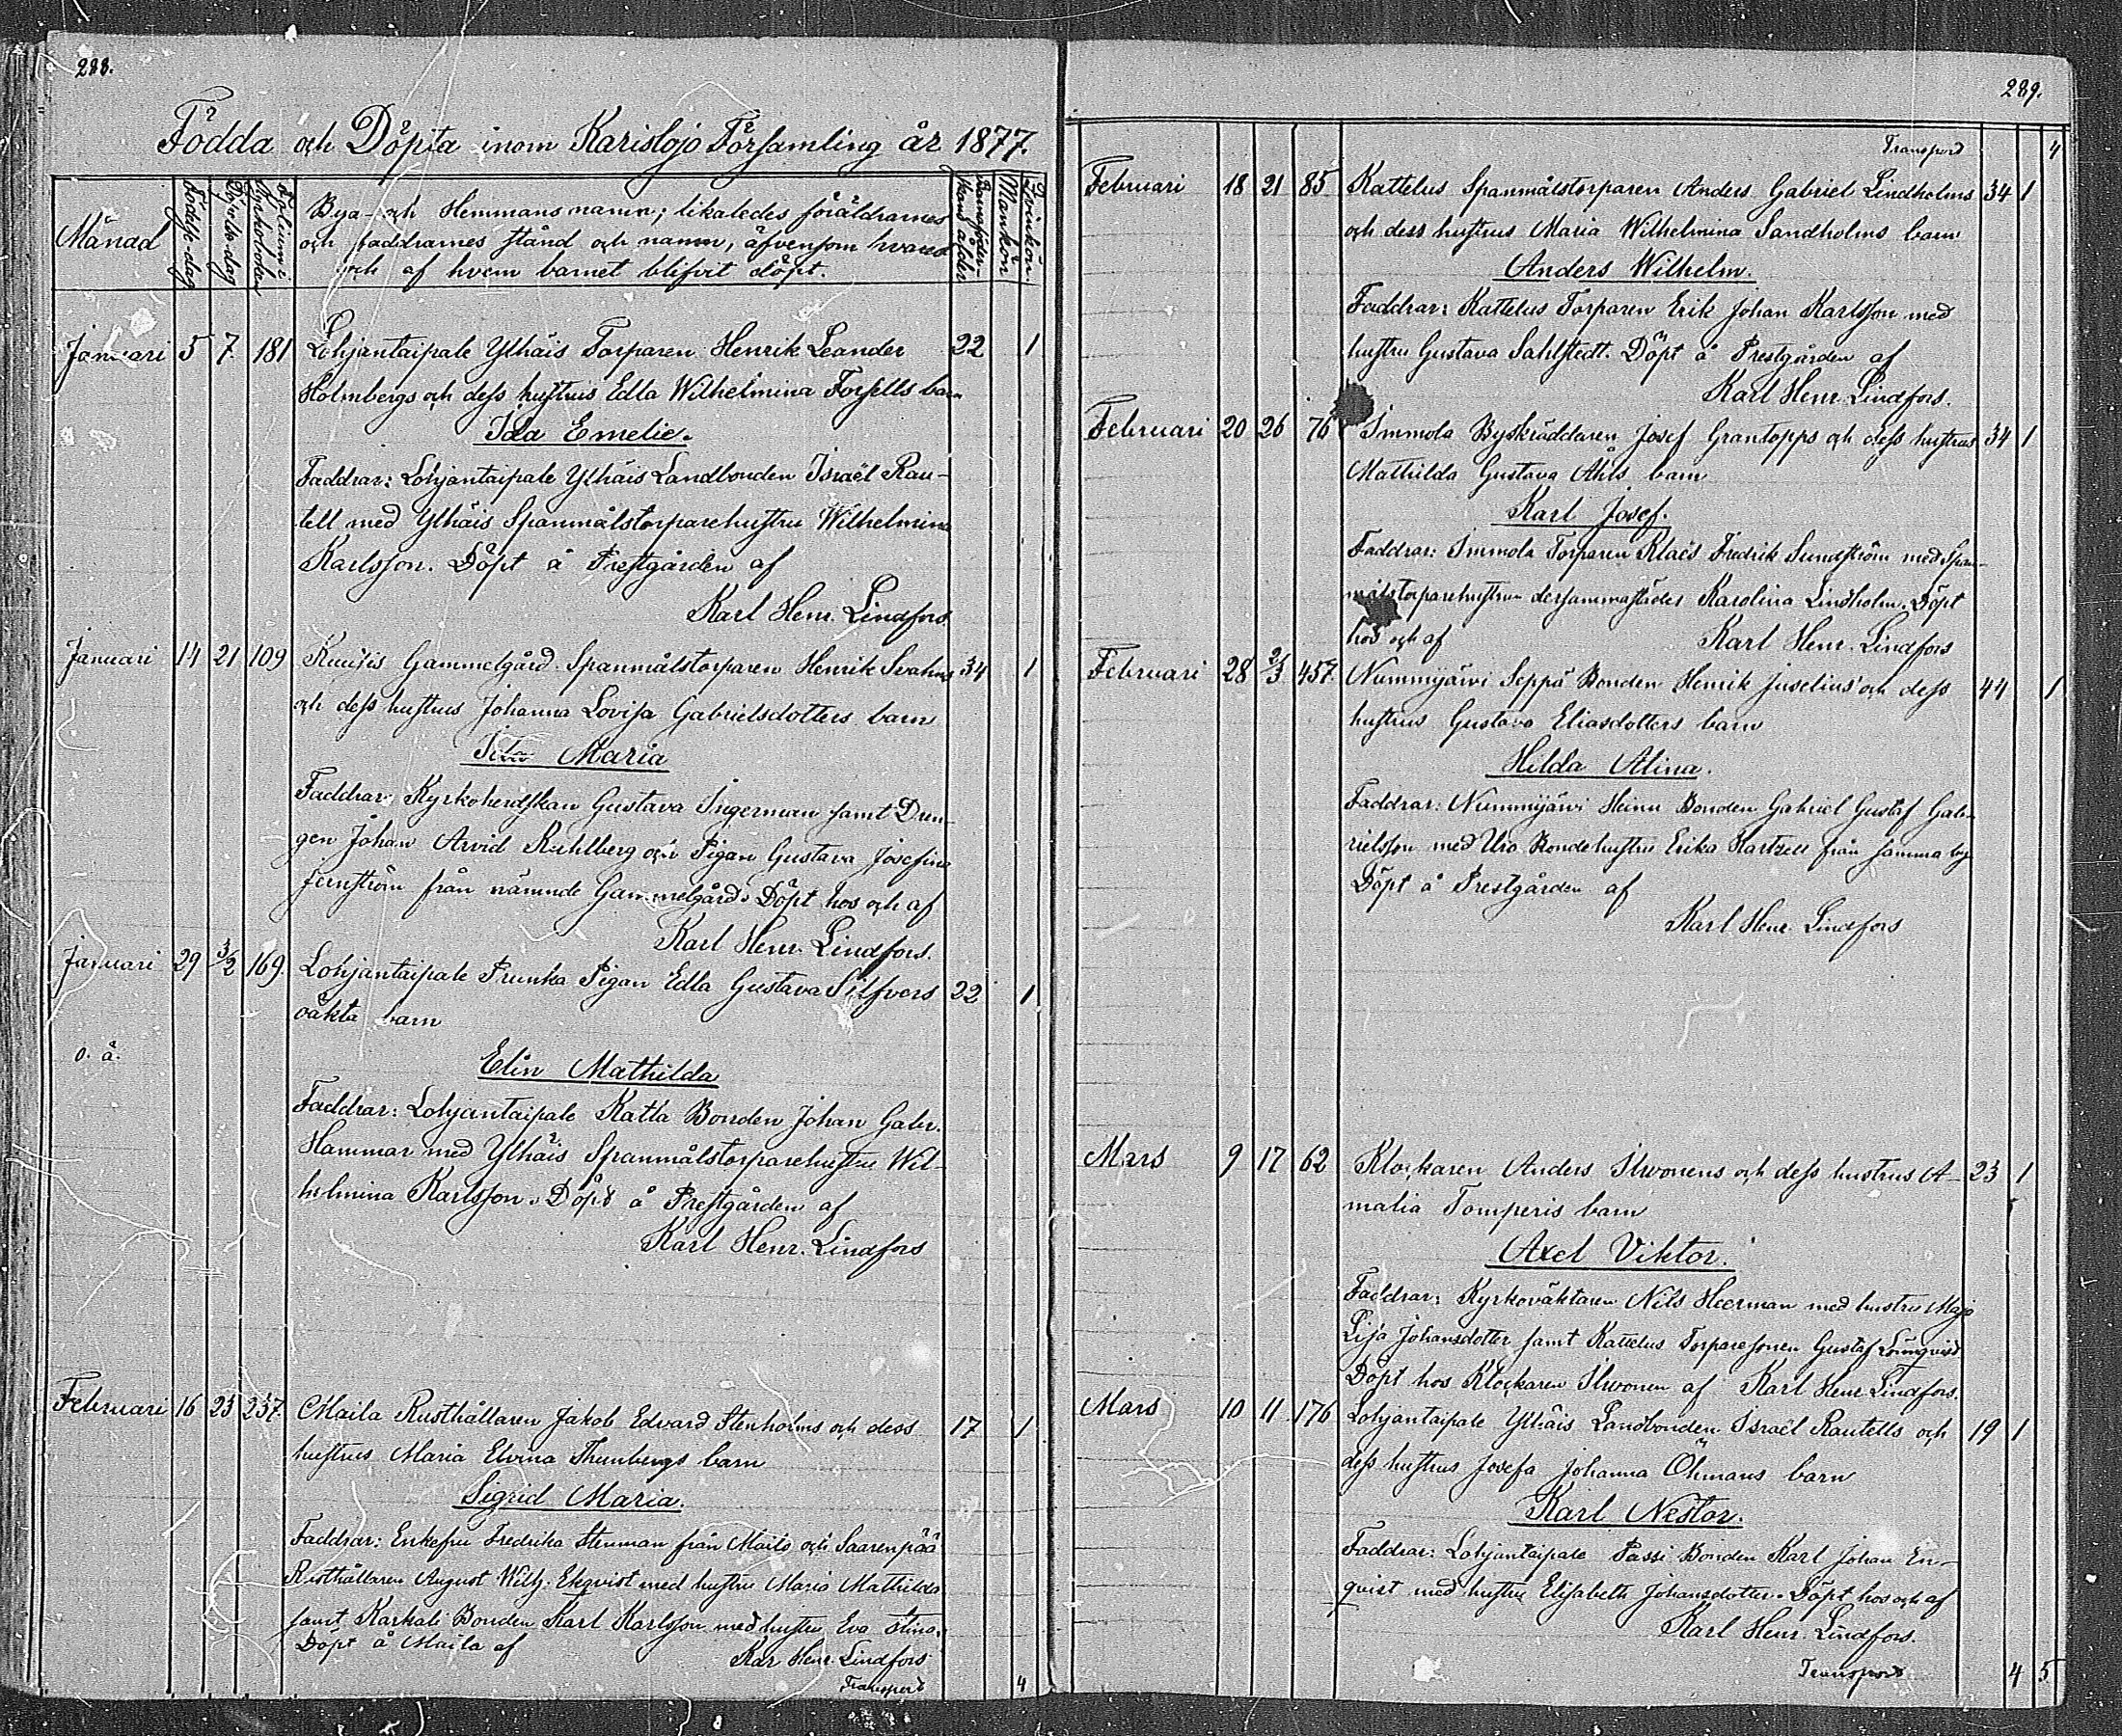 288.
Födda och Döpta inom Karislojo Församling år 1877.
Månad
Födelse-dag
Döpelse-dag
Folium i Kyrkoboken
Bya- och Hemmans namn; likaledes föräldrarnes
och faddrarnes stånd och namn, äfvensom hvarest
och af hvem barnet blifvit döpt.
Barnaföderskans ålder
Mankön
Qvinkön
Januari 5 7 181 Lohjantaipale Ylhäis Torparen Henrik Leander 22 1
Holmbergs och dess hustrus Edla Wilhelmina Forsells barn
Ida Emelie.
Faddrar: Lohjantaipale Ylhäis Landbonden Israël Rau-
tell med Ylhäis Spanmålstorparehustru Wilhelmina
Karlsson. Döpt å Prestgården af
Karl Henr. Lindfors
Januari 14 21 109 Gammelgård Spanmålstorparen Henrik Svahns 34 1
och dess hustrus Johanna Lovisa Gabrielsdotters barn
Maria
Faddrar: Kyrkoherdskan Gustava Ingerman samt Dren-
gen Johan Arvid och Pigan Gustava Josefina
Jernström från nämnde Gammelgård. Döpt hos och af
Karl Henr. Lindfors.
Januari 29 3/2 169. Lohjantaipale Prunka Pigan Edla Gustava Silfvers 22 1
oäkta barn
o. ä.
Elin Mathilda
Faddrar: Lohjantaipale Katla Bonden Johan Gabr.
Hammar med Ylhäis Spanmålstorparehustru Wil-
helmina Karlsson. Döpt å Prestgården af
Karl Henr. Lindfors
Februari 16 23 237. Maila Rusthållaren Jakob Edvard Stenholms och dess 17 1
hustrus Maria Elvina Thunbergs barn
Sigrid Maria.
Faddrar: Enkefru Fredrika Stenman från Maila och Saarenpää
Rusthållaren August Wilh. Ekqvist med hustru Maria Mathilda
samt Karkali Bonden Karl Karlsson med hustru Eva Stina.
Döpt å Maila af
Kar Henr. Lindfors
Transport 4
289.
Transport 4
Februari 18 21 85 Kattelus Spanmålstorparen Anders Gabriel Lindholms 34 1
och dess hustrus Maria Wilhelmina Sandholms barn
Anders Wilhelm.
Faddrar: Kattelus Torparen Erik Johan Karlsson med
hustru Gustava Sahlstedt. Döpt å Prestgården af
Karl Henr. Lindfors.
Februari 20 26 76 Immola Byskräddaren Josef Grantopps och dess hustrus 34 1
Mathilda Gustava Åhls barn
Karl Josef.
Faddrar: Immola Torparen Klaës Fredrik Sundström med Span-
målstorparehustrun dersammastädes Karolina Lindholm. Döpt
hos och af Karl Henr. Lindfors
Februari 28 2/3 457. Nummijärvi Seppä Bonden Henrik Juselius' och dess 44 1
hustrus Gustava Eliasdotters barn
Hilda Alina.
Faddrar: Nummijärvi Heinu Bonden Gabriel Gustaf Gab-
rielsson med Uro Bondehustru Erika Hartzell från samma by
Döpt å Prestgården af
Karl Henr. Lindfors
Mars 9 17 62 Klockaren Anders Ilwonens och dess hustrus A- 23 1
malia Tomperis barn
Axel Viktor.
Faddrar: Kyrkoväktaren Nils Heerman med hustru Maja
Lisa Johansdotter samt Kattelus Torparesonen Gustaf Lönnqvist.
Döpt hos Klockaren Ilwonen af Karl Henr. Lindfors.
Mars 10 11 176 Lohjantaipale Ylhäis Landbonden Israël Rautells och 19 1
dess hustrus Josefa Johanna Öhmans barn
Karl Nestor.
Faddrar: Lohjantaipale Passi Bonden Karl Johan En-
qvist med hustru Elisabeth Johansdotter. Döpt hos och af
Karl Henr. Lindfors.
Transport 4 5